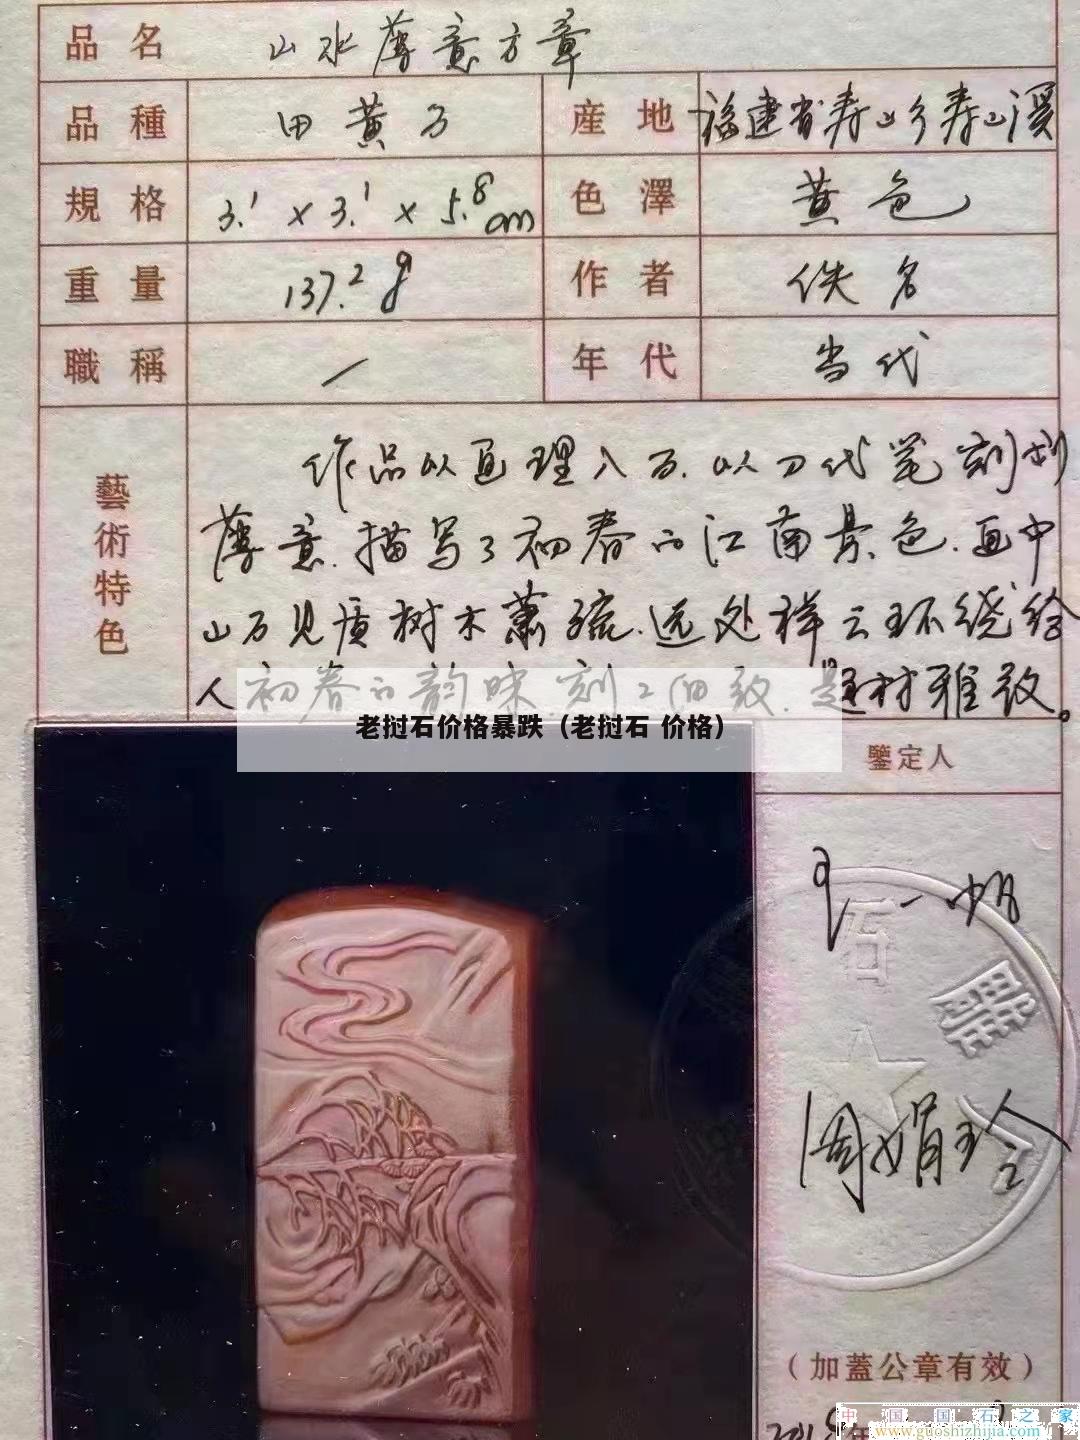 品名 山水薄意方章
品種 田黄石 産地 福建省寿山乡寿山溪
規格 3.1 x 3.1 x 5.8cm 色澤 黄色
重量 137.2g 作者 佚名
職稱 — 年代 当代
藝術特色
作品以画理入石.以刀代笔刻划
薄意.描写了初春的江南景色.画中
山石见质树木萧疏.远处祥云环绕给
人初春的韵味.刻工细致.题材雅致。
老挝石价格暴跌（老挝石 价格）
鑒定人
石
雕
周娟玲
（加蓋公章有效）
中国国石之家
www.guoshizhijia.com